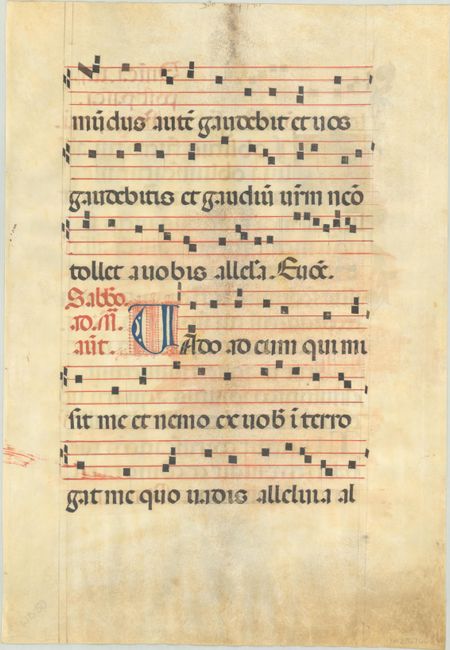 mūdus autē gaudebit et uos
gaudebitis et gaudiū urm ncō
tollet a uobis alleƚa. Euoē.
Sabbō.
ad. M̄.
ant̄.
UAdo ad eum qui mi
sit me et nemo ex uob̄ ī terro
gat me quo uadis alleluia al